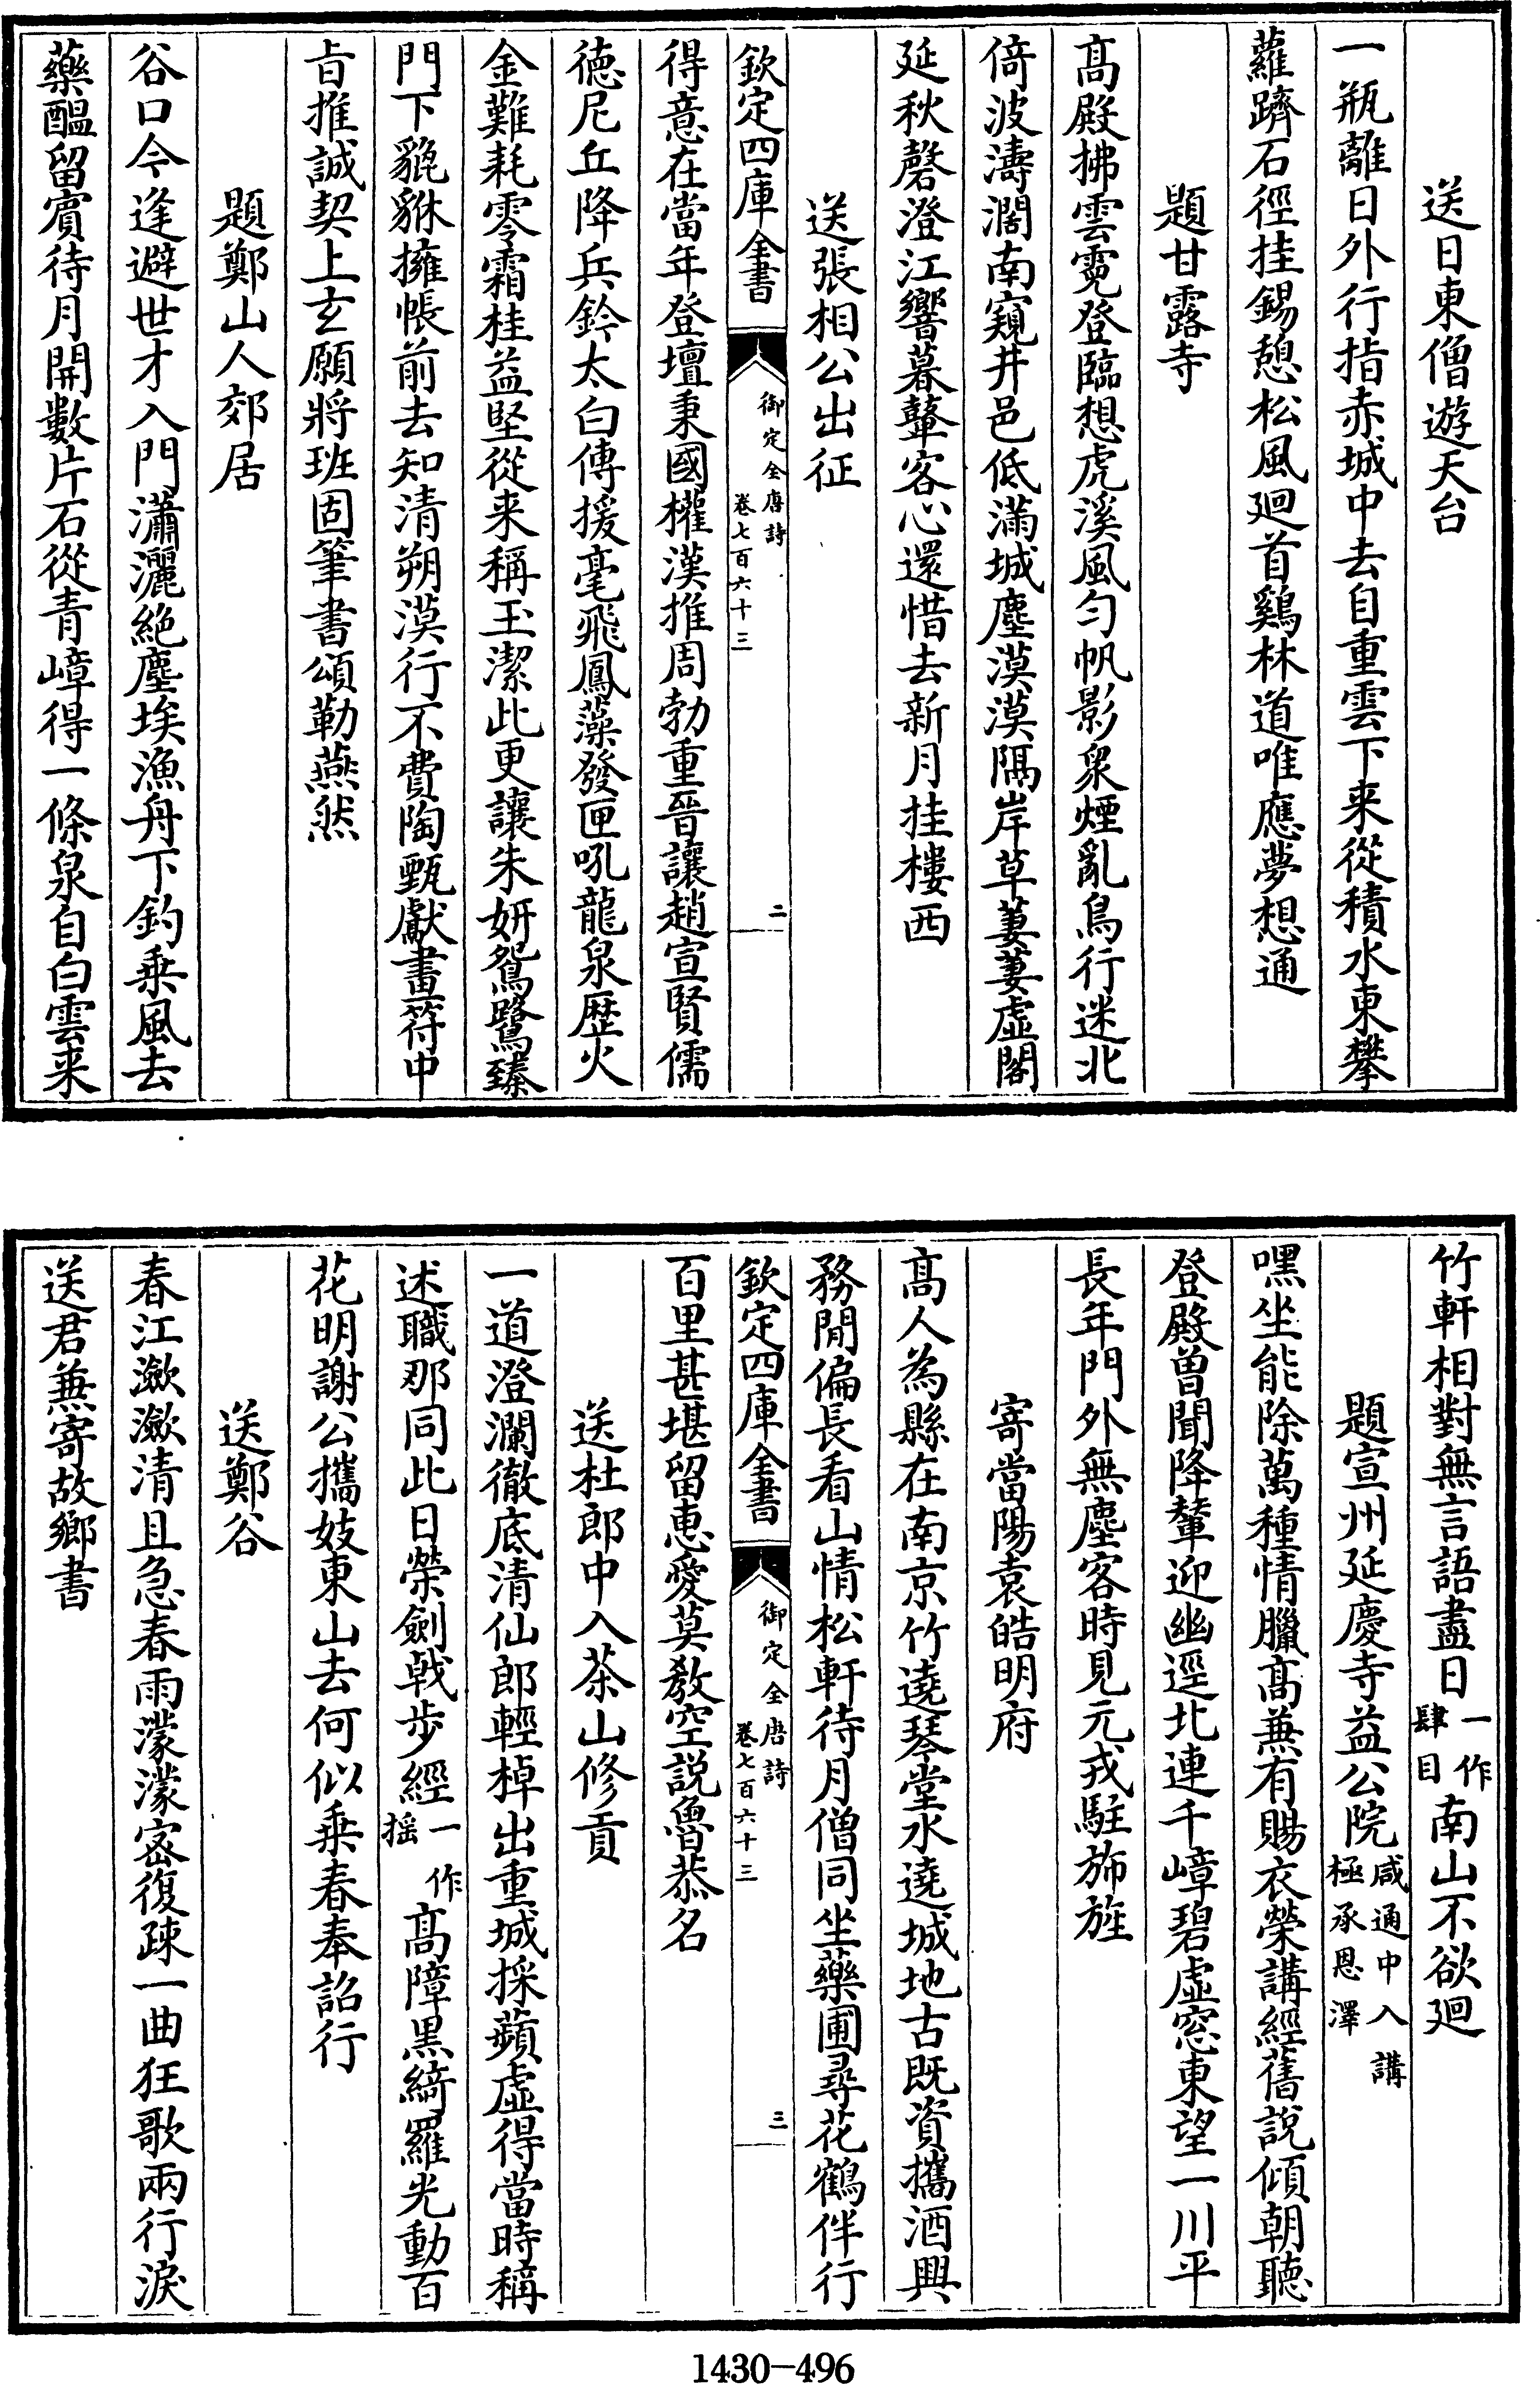 送日東僧遊天台
一瓶離日外行指赤城中去自重雲下来從積水東攀
蘿躋石徑挂錫憩松風廻首鷄林道唯應夢想通
題甘露寺
髙殿拂雲霓登臨想虎溪風勻帆影衆煙亂鳥行迷北
倚波濤濶南窺井邑低滿城塵漠漠隔岸草萋萋虛閣
延秋磬澄江響暮鼙客心還惜去新月挂樓西
送張相公出征
欽定四庫全書
御定全唐詩
卷七百六十三
二
得意在當年登壇秉國權漢推周勃重晉讓趙宣賢儒
德尼丘降兵鈐太白傳援毫飛鳳藻發匣吼龍泉歴火
金難耗零霜桂益堅從来稱玉潔此更讓朱妍鴛鷺臻
門下貔貅擁帳前去知清朔漠行不費陶甄獻畫符中
旨推誠契上玄願將班固筆書頌勒燕然
題鄭山人郊居
谷口今逢避世才入門瀟灑絶塵埃漁舟下釣乗風去
藥醖留賓待月開數片石從青嶂得一條泉自白雲来
竹軒相對無言語盡日一作肆目南山不欲廻
題宣州延慶寺益公院咸通中入講極承恩澤
嘿坐能除萬種情臘髙兼有賜衣榮講經舊說傾朝聽
登殿曽聞降輦迎幽逕北連千嶂碧虛窓東望一川平
長年門外無塵客時見元戎駐斾旌
寄當陽袁皓明府
髙人為縣在南京竹遶琴堂水遶城地古既資攜酒興
務閒偏長看山情松軒待月僧同坐藥圃尋花鶴伴行
欽定四庫全書
御定全唐詩
卷七百六十三
三
百里甚堪留惠愛莫教空說魯恭名
送杜郎中入茶山修貢
一道澄瀾徹底清仙郎輕棹出重城採蘋虛得當時稱
述職那同此日榮劍戟步經一作揺髙障黒綺羅光動百
花明謝公攜妓東山去何似乗春奉詔行
送鄭谷
春江瀲瀲清且急春雨濛濛宻復疎一曲狂歌兩行淚
送君兼寄故鄉書
1430-496